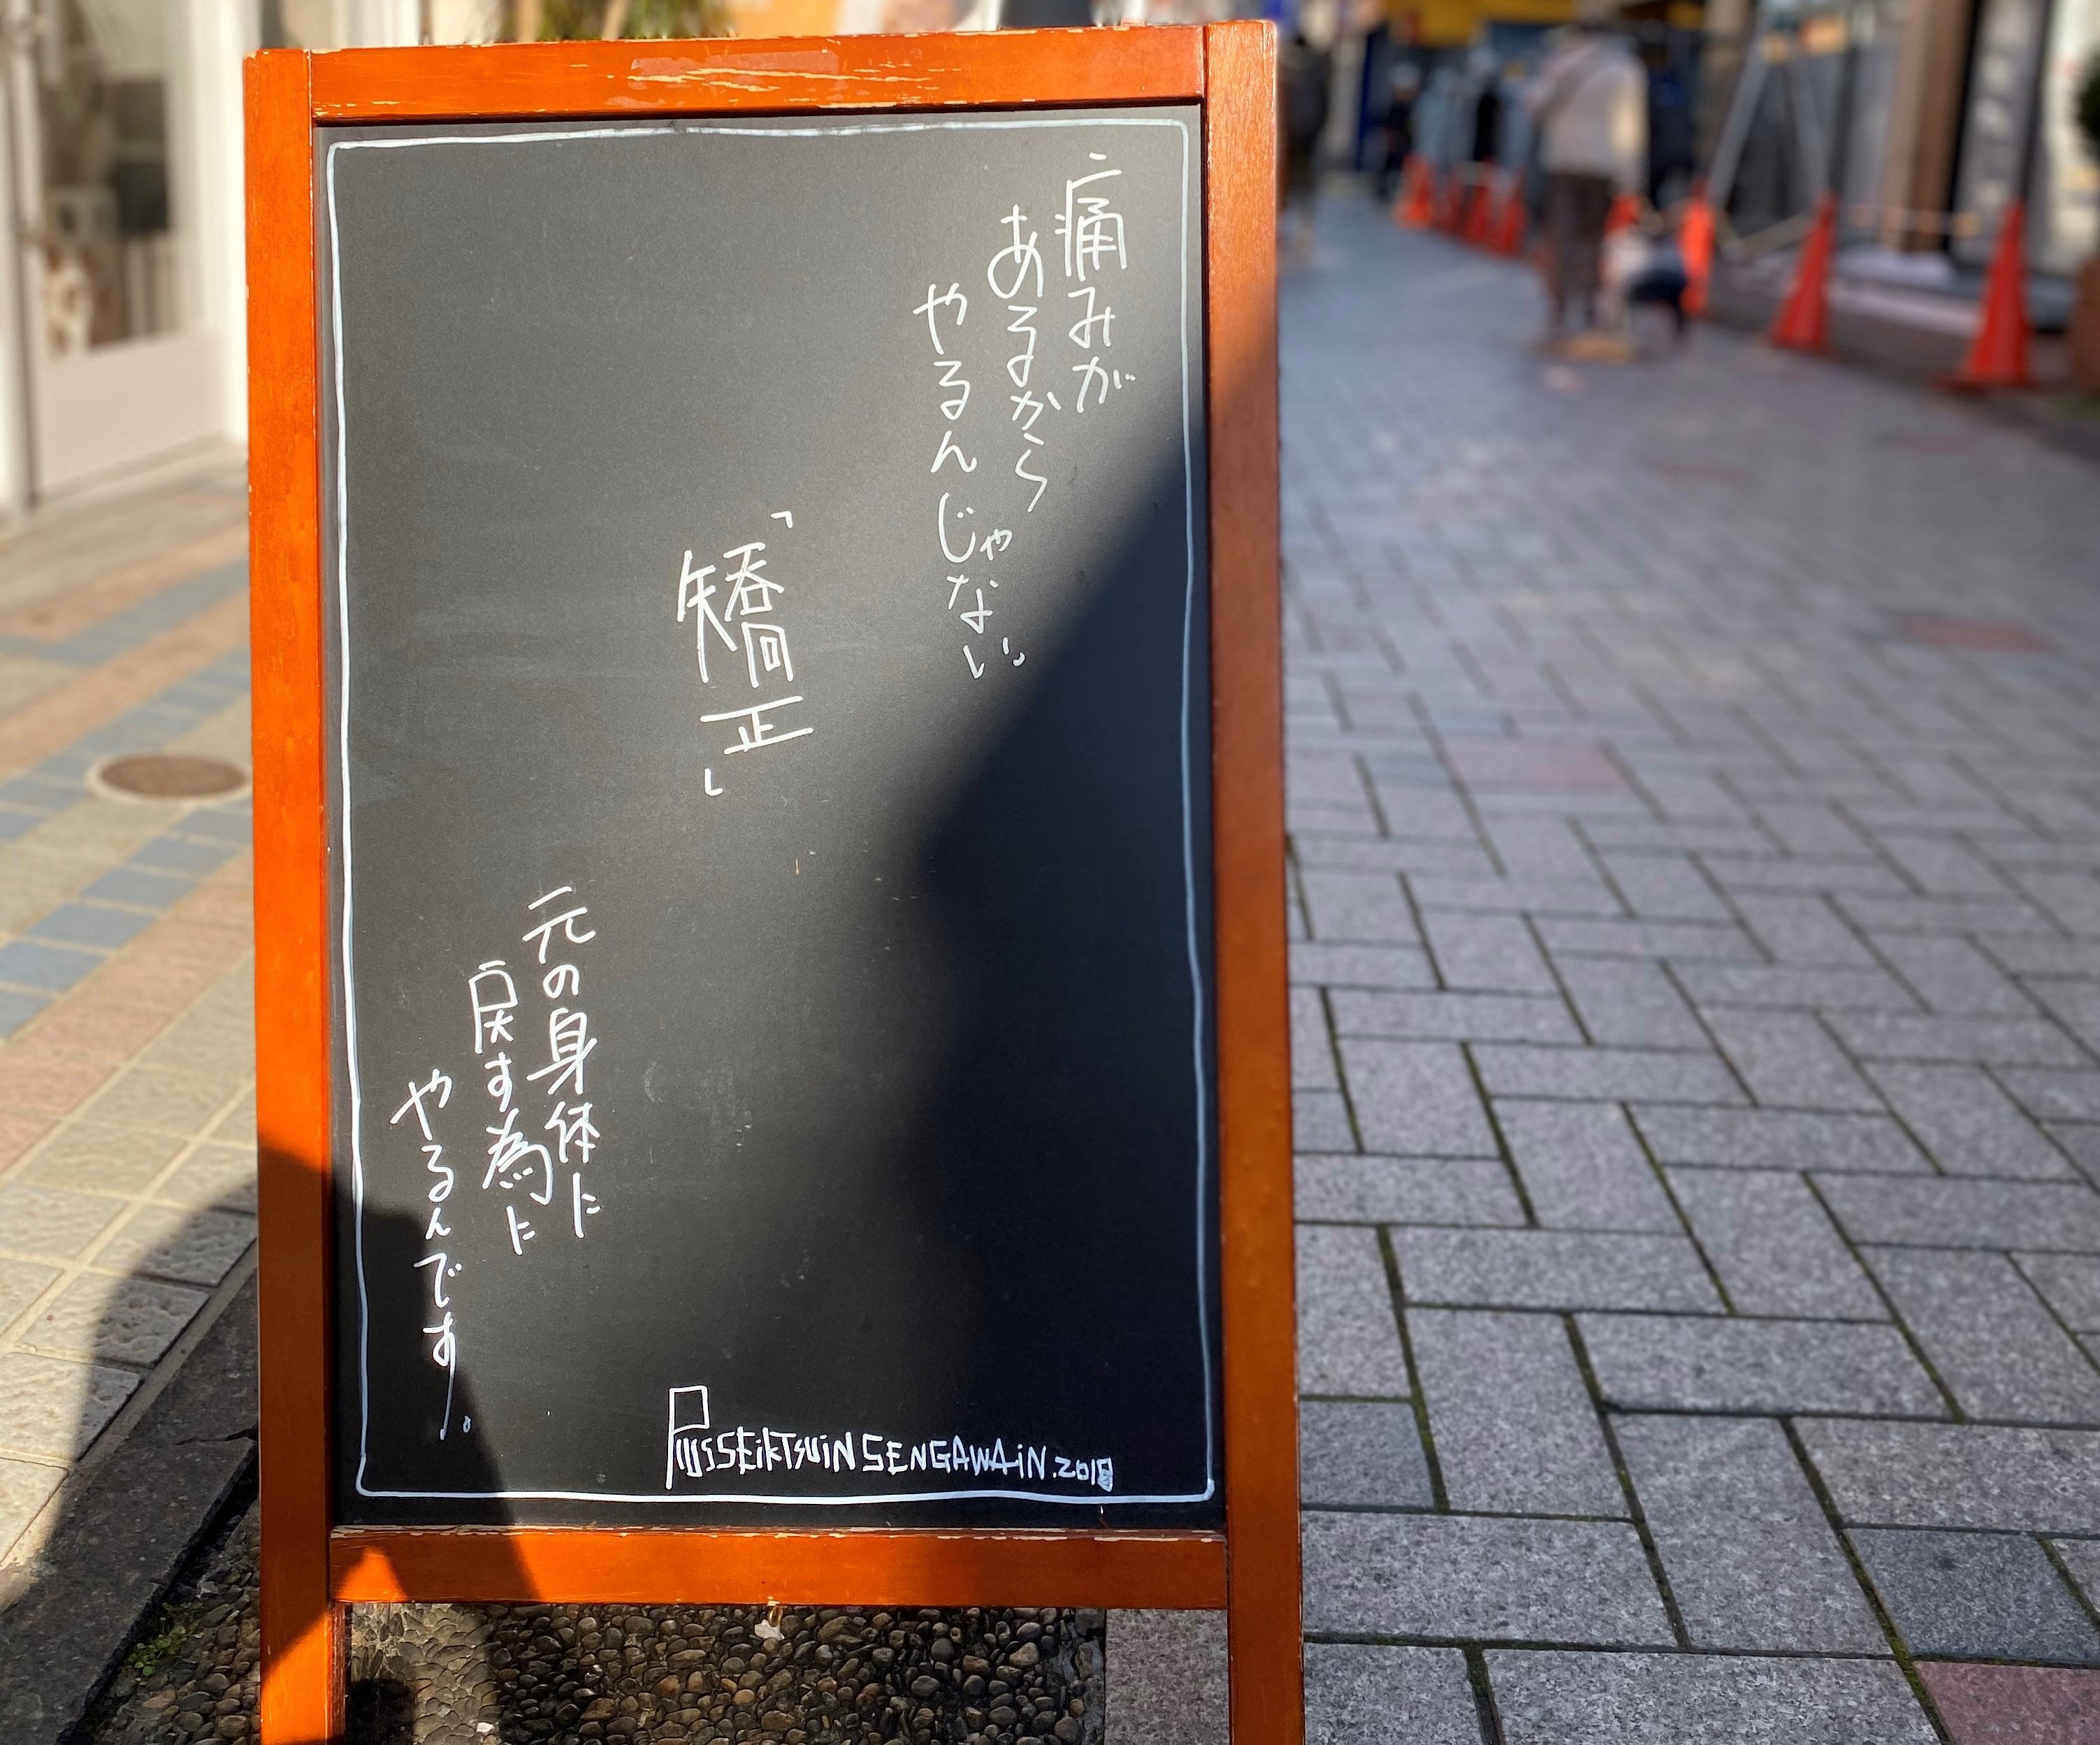 痛みが
あるから
やるんじゃない。
「矯正」
元の身体に
戻す為に
やるんです。
PLUSSEIKTSUIN SENGAWAIN.2018